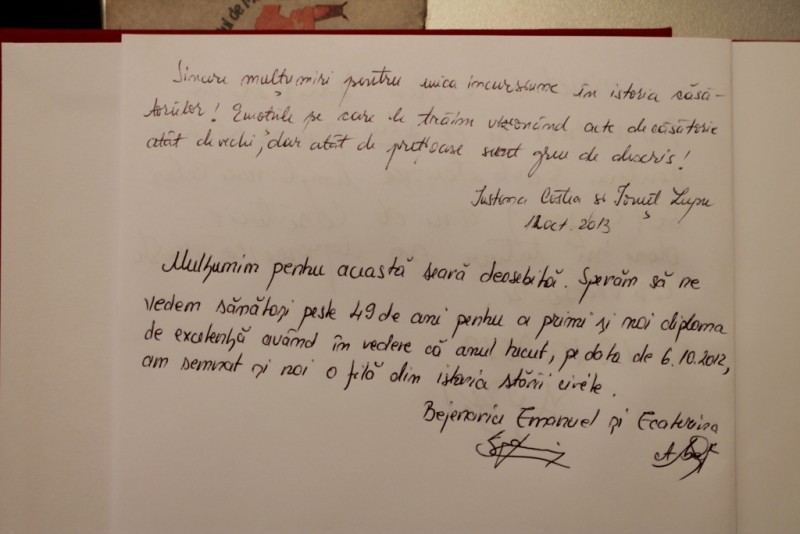 Sincere mulțumiri pentru unica incursiune în istoria căsă-
toriilor! Emoțiile pe care le trăim vizionând acte de căsătorie
atât de vechi, dar atât de prețioase sunt greu de descris!
Iustina Costea și Ionuț Lupu
11 oct. 2013
Mulțumim pentru această seară deosebită. Sperăm să ne
vedem sănătoși peste 49 de ani pentru a primi și noi diploma
de excelență având în vedere că anul trecut, pe data de 6.10.2012,
am semnat și noi o filă din istoria stării civile.
Bejenariu Emanuel și Ecaterina